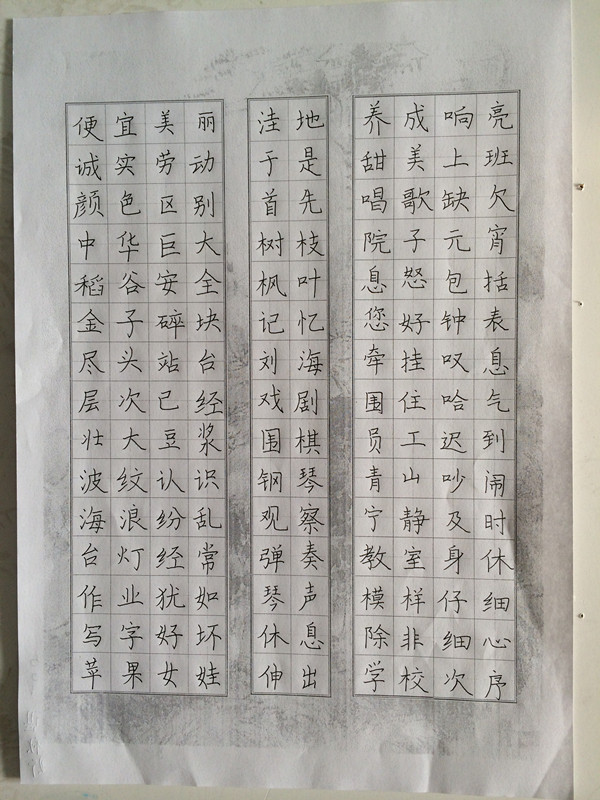 便宜美丽
诚实劳动
颜色区别
中华巨大
稻谷安全
金子碎块
尽头站台
层次已经
壮大豆浆
波纹认识
海浪纷乱
台灯经常
作业犹如
写字好坏
苹果女娃
洼地
于是
首先
树枝
枫叶
记忆
刘海
戏剧
围棋
钢琴
观察
弹奏
琴声
休息
伸出
养成响亮
甜美上班
唱歌缺欠
院子元宵
息怒包括
您好钟表
牵挂叹息
围住哈气
员工迟到
青山吵闹
宁静及时
教室身休
模样仔细
除非细心
学校次序